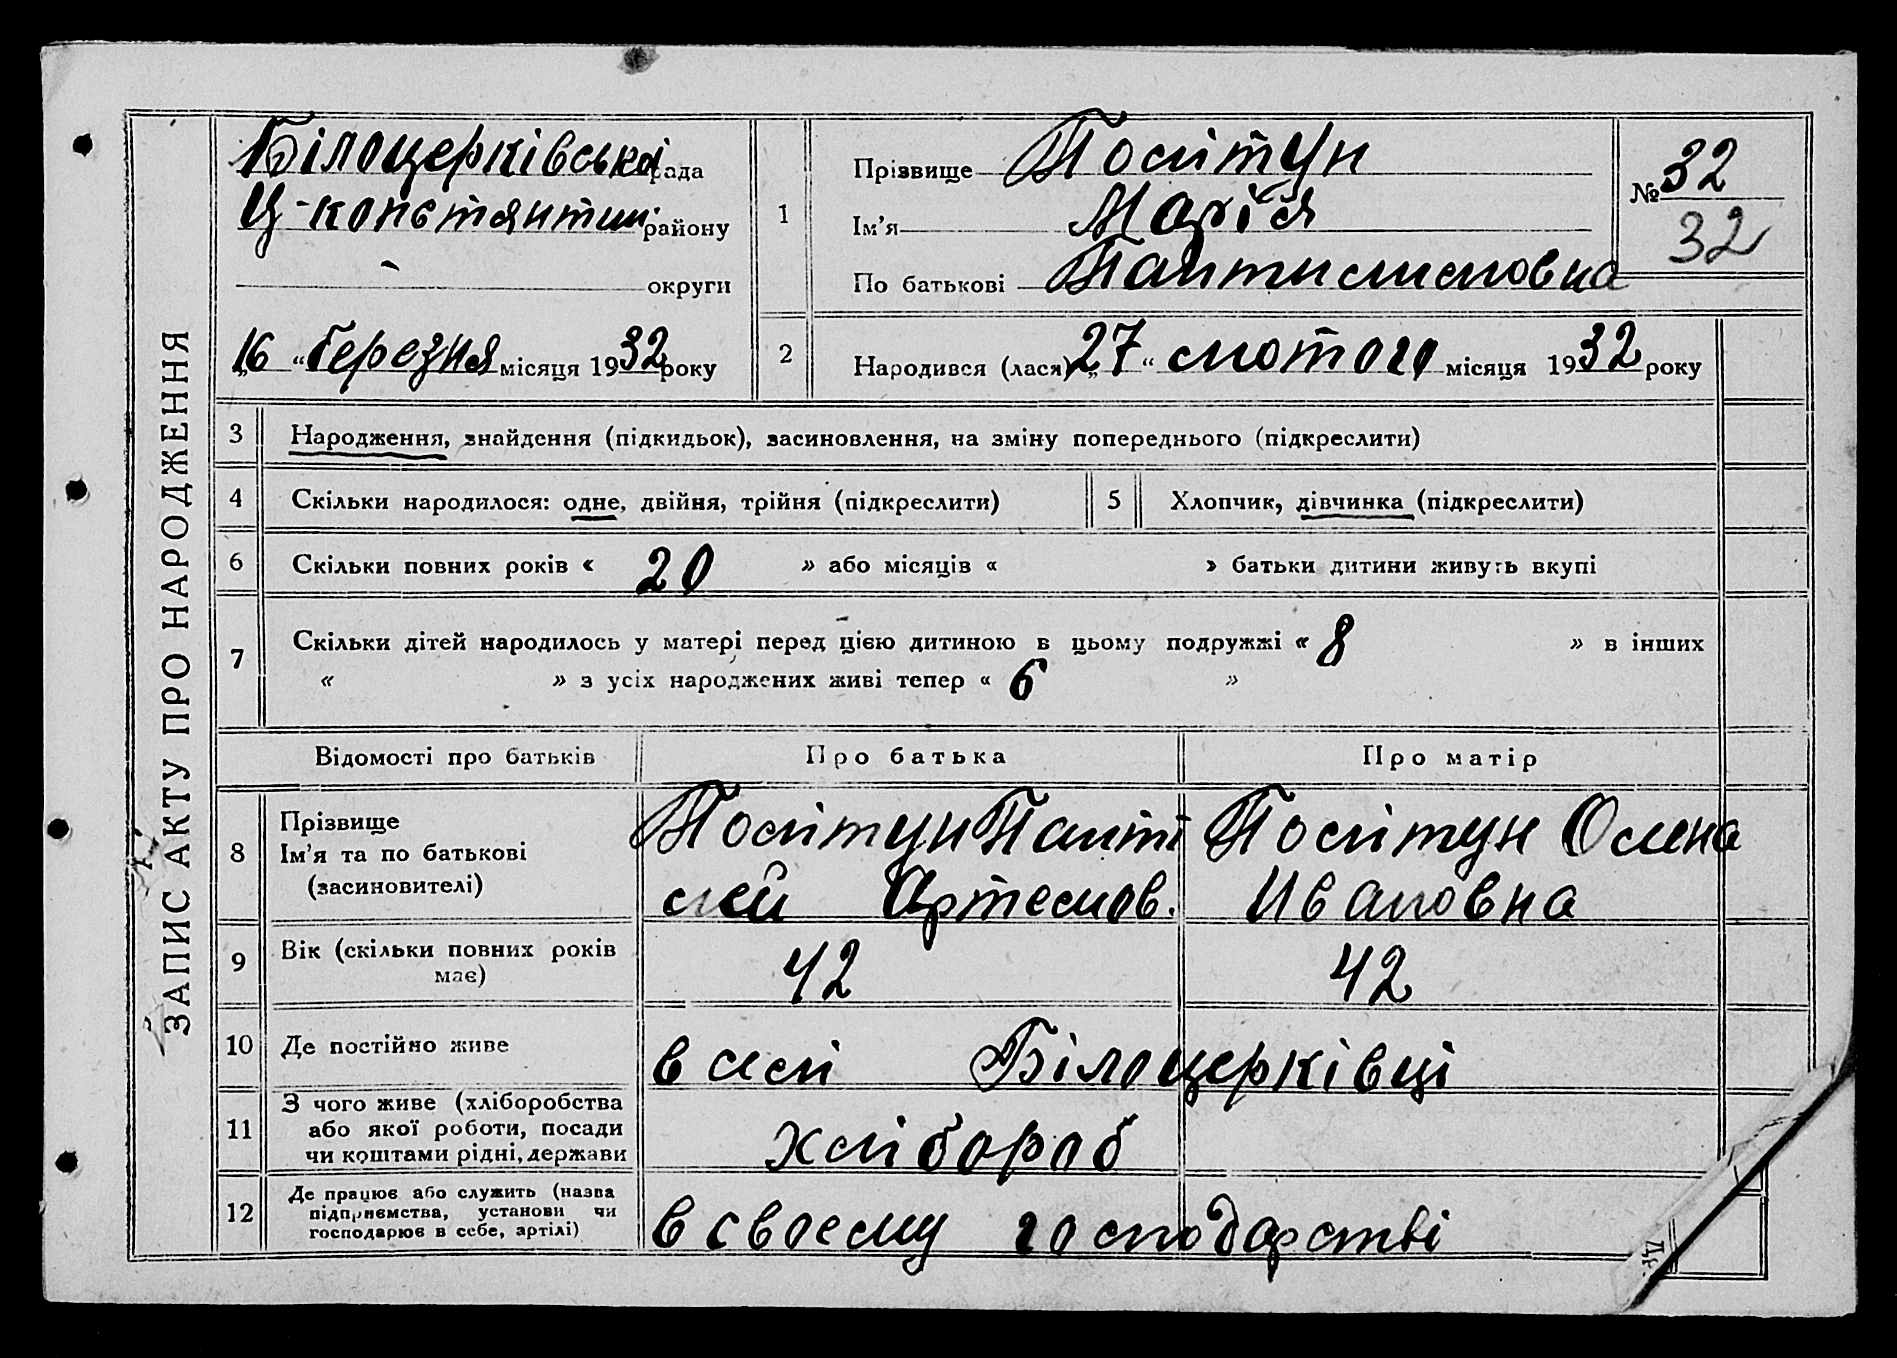 ЗАПИС АКТУ ПРО НАРОДЖЕННЯ
Білоцерківська рада
районy
округи
16 „ березня місяця 1932 року
1
Прізвище Політун
Ім’я Марія
По батькові
№ 32
32
2
Народився (лася) „27“ лютого місяця 1932 року
3 Народження, знайдення (підкидьок), засиновлення, на зміну попереднього (підкреслити)
4 Скільки народилося: одне, двійня, трійня (підкреслити)
5 Хлопчик, дівчинка (підкреслити)
6 Скільки повних років « 20 » або місяців « » батьки дитини живуть вкупі
7 Скільки дітей народилось у матері перед цією дитиною в цьому подружжі « 8 » в інших
« » з усіх народжених живі тепер « 6 »
Відомості про батьків
Про батька
Про матір
8
Прізвище
Ім’я та по батькові
(засиновителі)
Політун Панті
лей Артемов.
Політун Олена
Ивановна
9
Вік (скільки повних років
має)
42
42
10 Де постійно живе
в селі Білоцерківці
11
З чого живе (хліборобства
або якої роботи, посади
чи коштами рідні, держави
хлібороб
12
Де працює або служить (назва
підприємства, установи чи
господарює в себе, артілі)
в своему господарстві